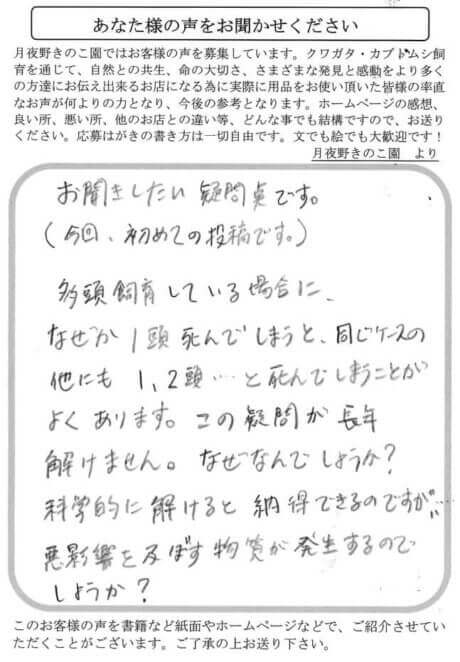 あなた様の声をお聞かせください
月夜野きのこ園ではお客様の声を募集しています。クワガタ・カブトムシ飼
育を通じて、自然との共生、命の大切さ、さまざまな発見と感動をより多く
の方達にお伝え出来るお店になる為に実際に用品をお使い頂いた皆様の率直
なお声が何よりの力となり、今後の参考となります。ホームページの感想、
良い所、悪い所、他のお店との違い等、どんな事でも結構ですので、お送り
ください。応募はがきの書き方は一切自由です。文でも絵でも大歓迎です！
月夜野きのこ園 より
お聞きしたい疑問点です。
（今回、初めての投稿です。）
多頭飼育している場合に、
なぜか1頭死んでしまうと、同じケースの
他にも1、2頭…と死んでしまうことが
よくあります。この疑問が長年
解けません。なぜなんでしょうか？
科学的に解けると納得できるのですが…
悪影響を及ぼす物質が発生するので
しょうか？
このお客様の声を書籍など紙面やホームページなどで、ご紹介させてい
ただくことがございます。ご了承の上お送り下さい。